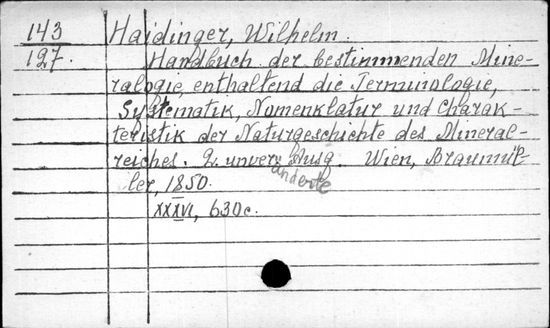 143 Haidinger, Wilhelm.
127. Handbuch der bestimmenden Mine-
ralogie, enthaltend die Terminologie,
Systematik, Nomenklatur und Charak-
teristik der Naturgeschichte des Mineral-
reiches. 2. unver Ausg. Wien, Braumül-
änderte
ler, 1850.
XXXVI, 630c.